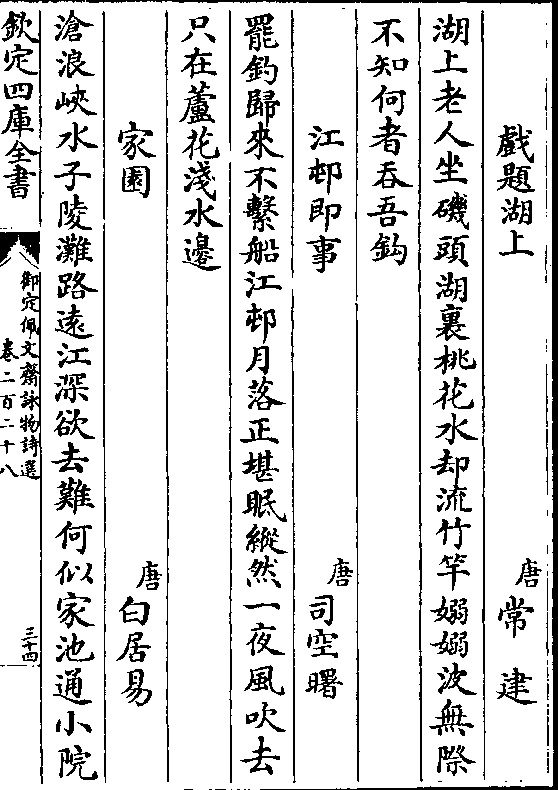 戲題湖上
唐常建
湖上老人坐磯頭湖裏桃花水却流竹竿嫋嫋波無際
不知何者吞吾鈎
江邨即事
唐司空曙
罷釣歸來不繫船江邨月落正堪眠縱然一夜風吹去
只在蘆花淺水邊
家園
唐白居易
滄浪峽水子陵灘路遠江深欲去難何似家池通小院
欽定四庫全書
御定佩文齋詠物詩選
卷二百二十八
三十四